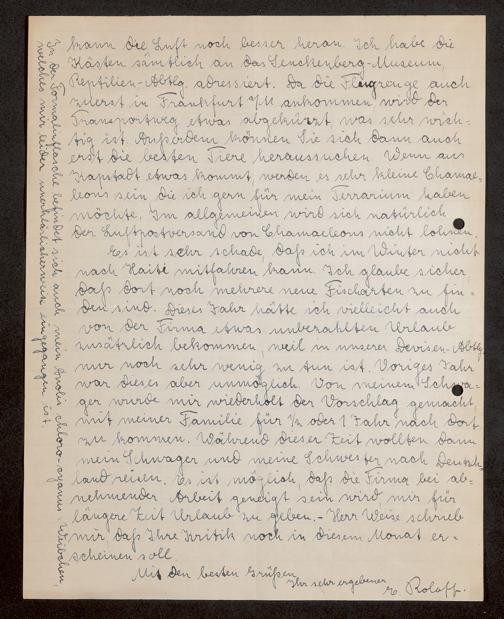 kann die Luft noch besser heran. Ich habe die
Kästen sämtlich an das Senckenberg-Museum,
Reptilien-Abtlg. adressiert. Da die Flugzeuge auch
zuerst in Frankfurt /M. ankommen wird der
Transportweg etwas abgekürzt, was sehr wich-
tig ist. Außerdem können Sie sich dann auch
erst die besten Tiere heraussuchen. Wenn aus
Kapstadt etwas kommt, werden es sehr kleine Chamae-
leons sein, die ich gern für mein Terrarium haben
möchte. Im allgemeinen wird sich natürlich
der Luftpostversand von Chamaeleons nicht lohnen.
Es ist sehr schade, daß ich im Winter nicht
nach Haiti mitfahren kann. Ich glaube sicher,
daß dort noch mehrere neue Fischarten zu fin-
den sind. Dieses Jahr hätte ich vielleicht auch
von der Firma etwas unbezahlten Urlaub
zusätzlich bekommen, weil in unserer Devisen-Abtlg.
nur noch sehr wenig zu tun ist. Voriges Jahr
war dieses aber unmöglich. Von meinem Schwa-
ger wurde mir wiederholt der Vorschlag gemacht
mit meiner Familie für ½ oder 1 Jahr nach dort
zu kommen. Während dieser Zeit wollten dann
mein Schwager und meine Schwester nach Deutsch-
land reisen. Es ist möglich, daß die Firma bei ab-
nehmender Arbeit geneigt sein wird mir für
längere Zeit Urlaub zu geben. – Herr Weise schrieb
mir, daß Ihre Kritik noch in diesem Monat er-
scheinen soll.
Mit den besten Grüßen
Ihr sehr ergebener
E. Roloff.
In der Formalinflasche befindet sich auch mein Anolis chloro-cyanus Weibchen,
welches mir leider unerklärlicherweise eingegangen ist.